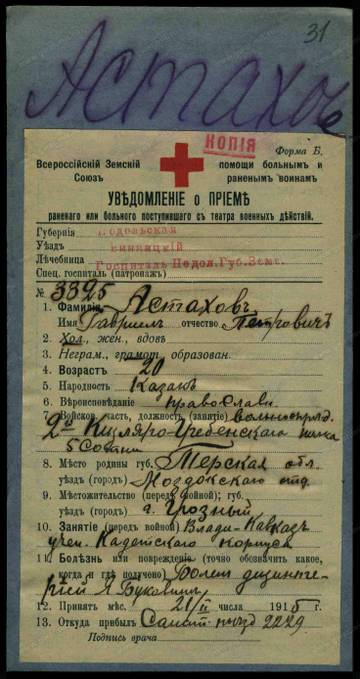 31
Астаховъ
КОПІЯ
Форма Б.
Всероссійскій Земскій Союзъ
помощи больнымъ и раненымъ воинамъ
УВѢДОМЛЕНІЕ о ПРІЕМѢ
раненаго или больного поступившаго съ театра военныхъ дѣйствій.
Губернія Подольская
Уѣздъ Винницкій
Лѣчебница Госпиталь Подол.Губ.Земс.
Спец. госпиталь (патронажъ)
№ 3395
1. Фамилія Астаховъ
Имя Гавриил отчество Петровичъ
2. Хол., жен., вдовъ
3. Неграм., грамот. образован.
4. Возрастъ 20
5. Народность Казакъ
6. Вѣроисповѣданіе православн.
7. Войсков. часть, должность (занятіе) вольноопред.
2й Кизляро-Гребенскаго полка
5 Сотни
8. Мѣсто родины губ. Терская обл.
уѣздъ (городъ) Моздокскаго отд.
9. Мѣстожительство (передъ войной); губ.
уѣздъ (городъ) г. Грозный
10. Занятіе (передъ войной) Влади-Кавказ
учен. Кадетскаго корпуса
11. Болѣзнь или поврежденіе (точно обозначить какое,
когда и гдѣ получено) Болен дизинте-
ріей Буковина
12. Принятъ мѣс. 21/II числа 1915 г.
13. Откуда прибылъ Санит. поѣзд 2229
Подпись врача